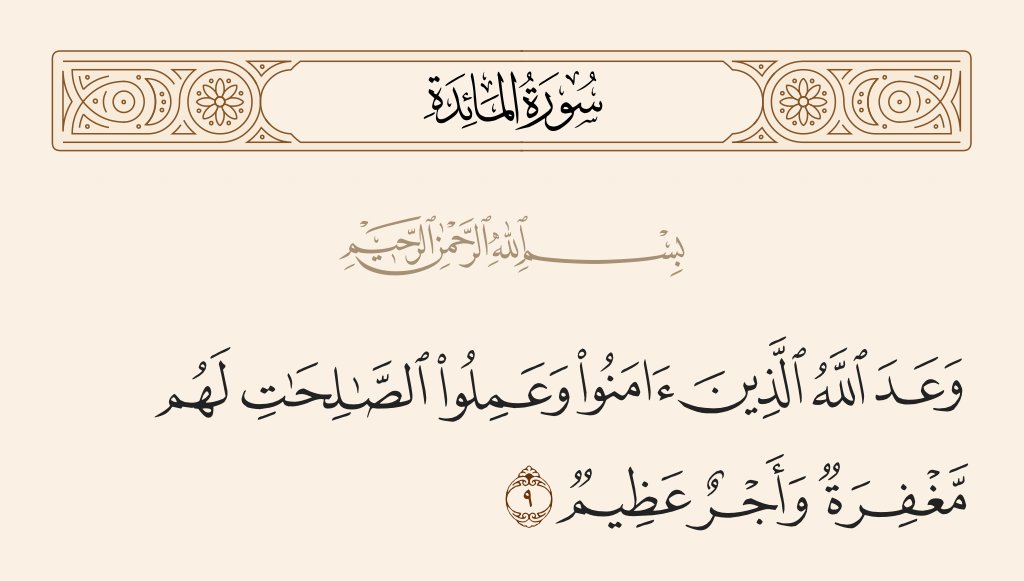 سُورَةُ المَائِدَةِ
بِسْمِ ٱللَّهِ ٱلرَّحْمَٰنِ ٱلرَّحِيمِ
وَعَدَ ٱللَّهُ ٱلَّذِينَ ءَامَنُوا۟ وَعَمِلُوا۟ ٱلصَّـٰلِحَـٰتِ لَهُم
مَّغْفِرَةٌ وَأَجْرٌ عَظِيمٌ ٩